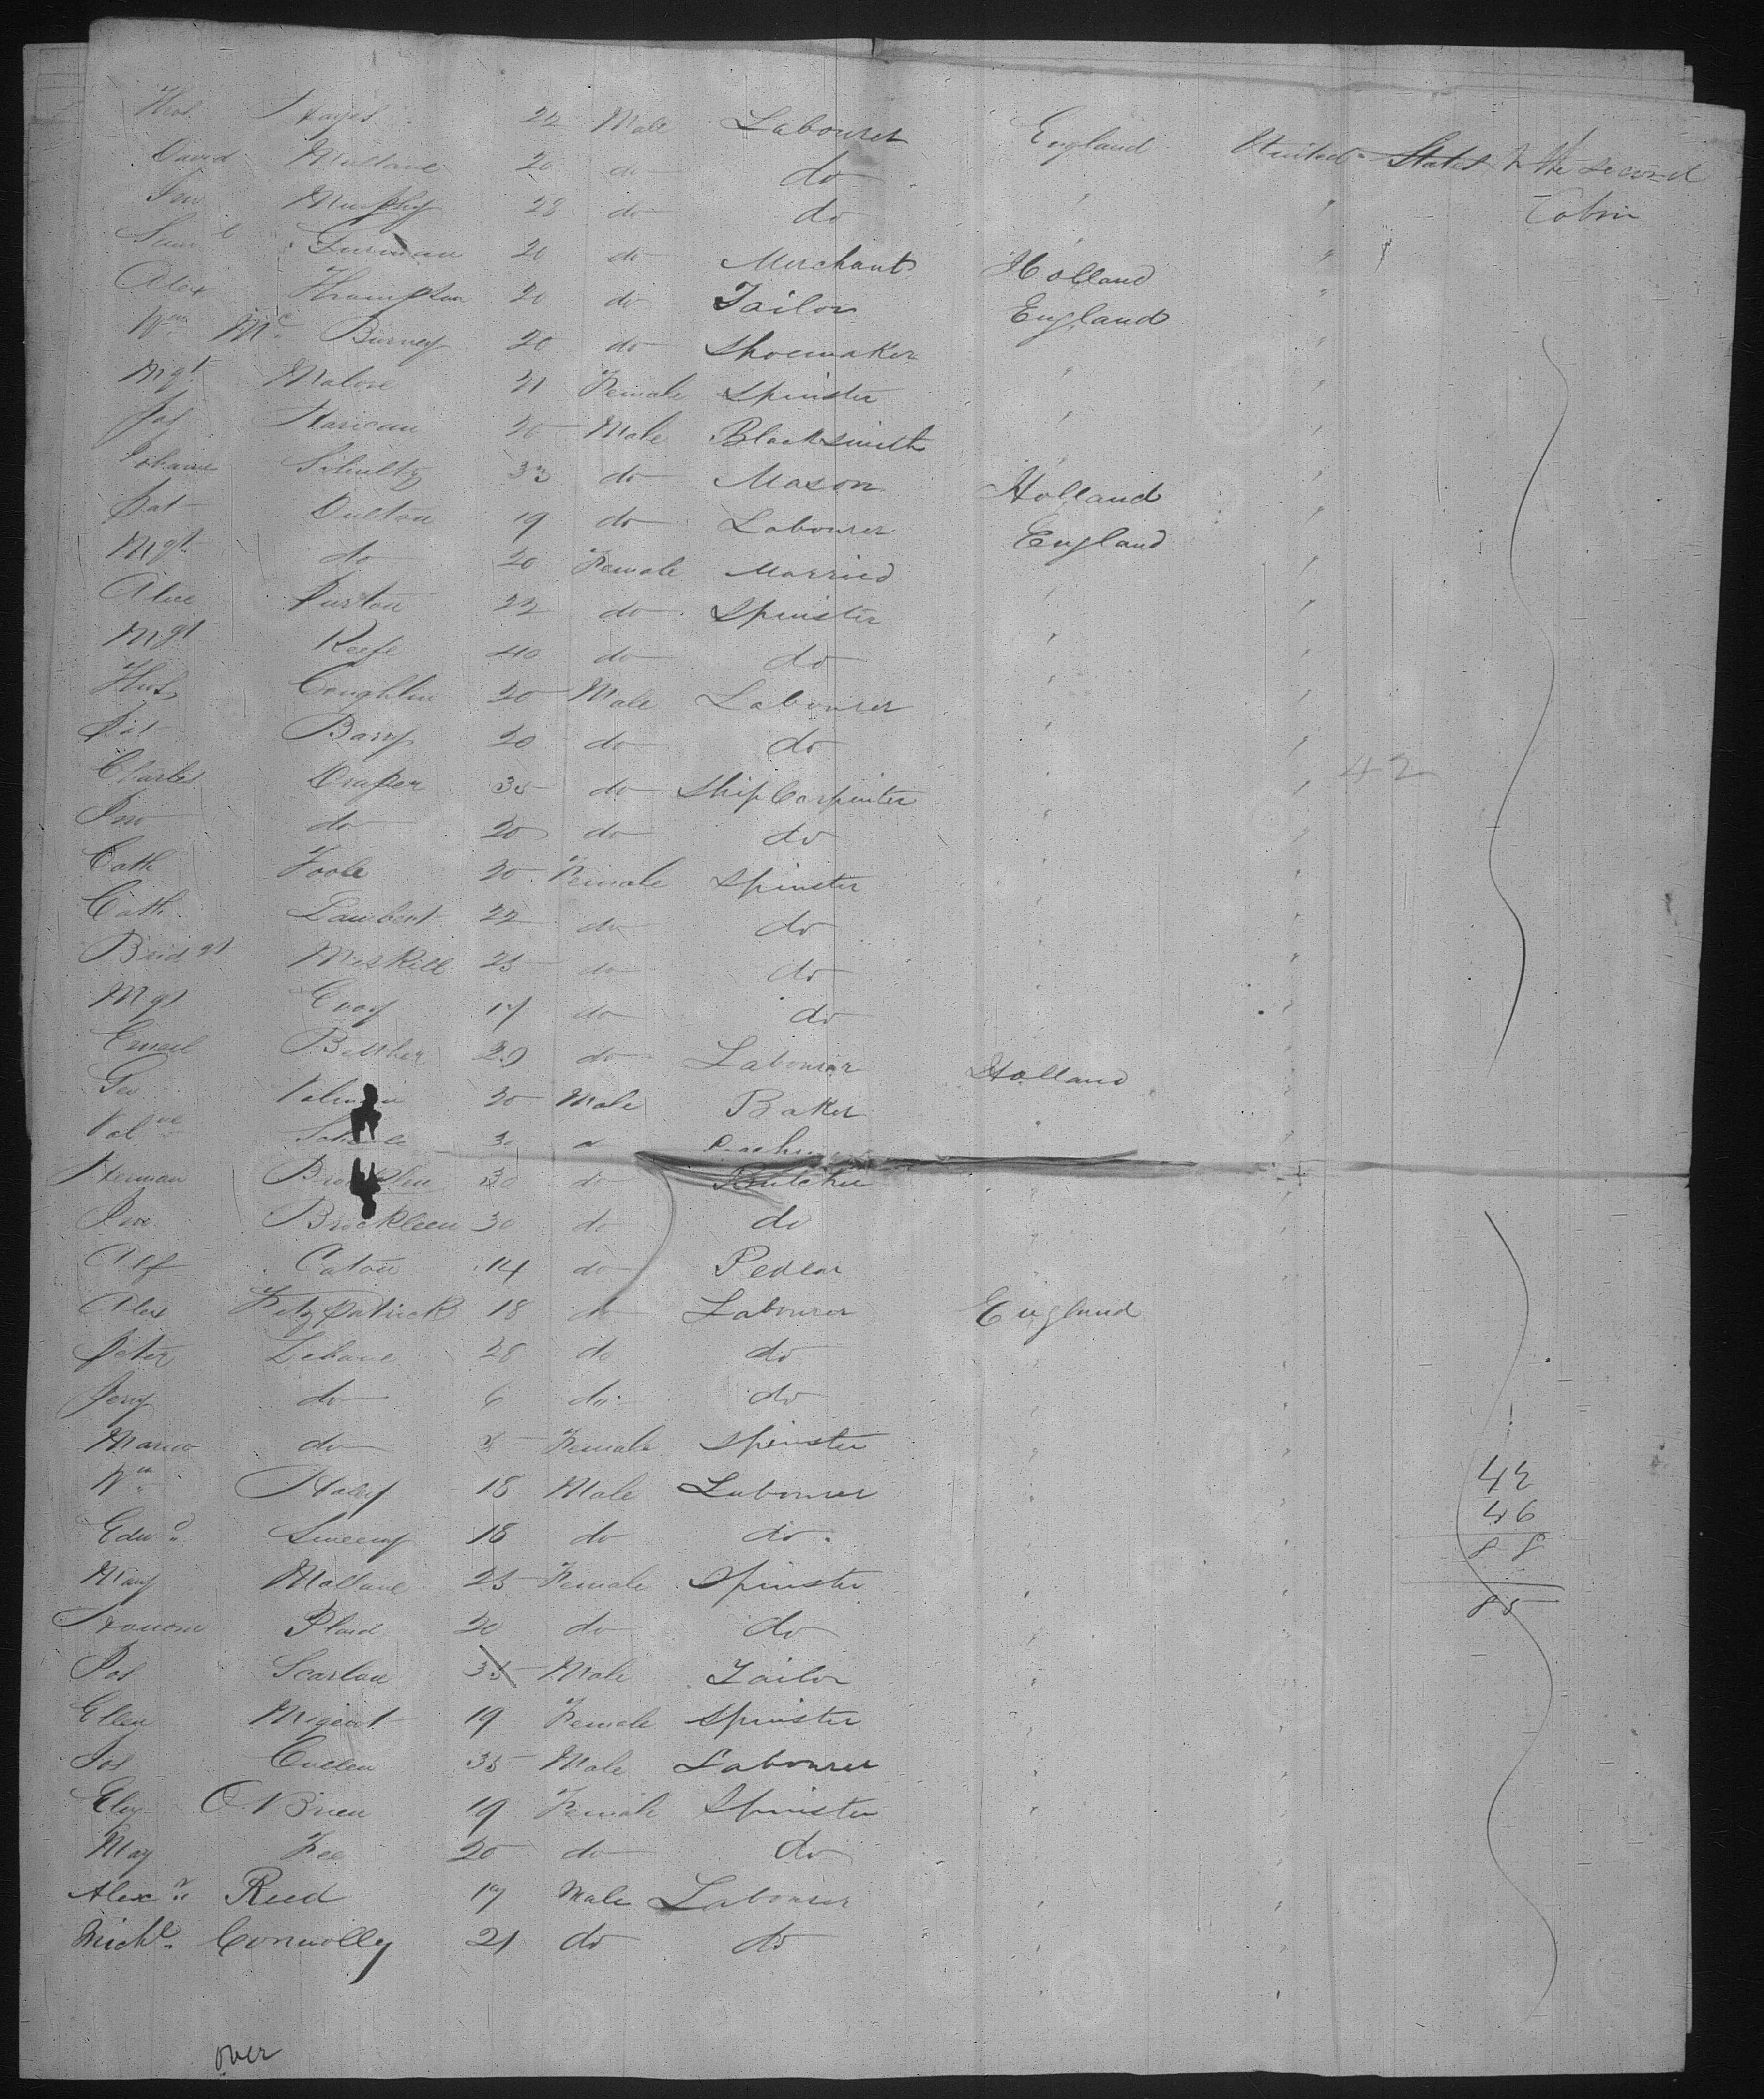 Thos Hayes 22 Male Labourer England United States In the second
David Mullane 20 do do " " Cabin
Jno Murphy 28 do do " "
Saml 20 do Merchant Holland "
Alex Thompson 20 do Tailor England "
Wm Mc Burney 20 do Shoemaker " "
Mgt Malone 21 Female Spinster " "
Jas 20 Male Blacksmith " "
Johann Schultz 33 do Mason Holland "
Pat Dulton 19 do Labourer England "
Mgt do 20 Female Married " "
Alice Purton 22 do Spinster " "
Mgt Keefe 40 do do " "
Thos Coughlin 20 Male Labourer " "
Pat Barry 20 do do " " 42
Charles Draper 35 do Ship Carpenter " "
Jno do 20 do do " "
Cath Toole 20 Female Spinster " "
Cath Lambert 22 do do " "
Bridgt Meskill 25 do do " "
Mgt 17 do do " "
Belther 20 do Labourer Holland "
Geo 30 Male Baker " "
30
Herman 30 do Butcher "
Jno Brockleen 30 do do " "
Alf Caton 14 do Pedlar " "
Alex Fitz Patrick 18 do Labourer England
Peter Lehane 28 do do " "
Jerry do 6 do do " "
do Female Spinster " "
Wm Haley 18 Male Labourer " " 42
Edwd Sweeny 18 do do " " 46
Mary Mallane 25 Female Spinster " " 88
20 do do " " 85
Jas Scanlan 35 Male Tailor " "
Ellen 19 Female Spinster " "
Jas Cullen 35 Male Labourer " "
Eliz O'Brien 19 Female Spinster " "
May Fee 20 do do " "
Alexr Reed 19 Male Labourer " "
Michl Connolly 21 do do " "
over